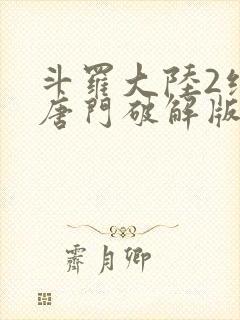 斗羅大陸2
唐門破解版
霽月卿